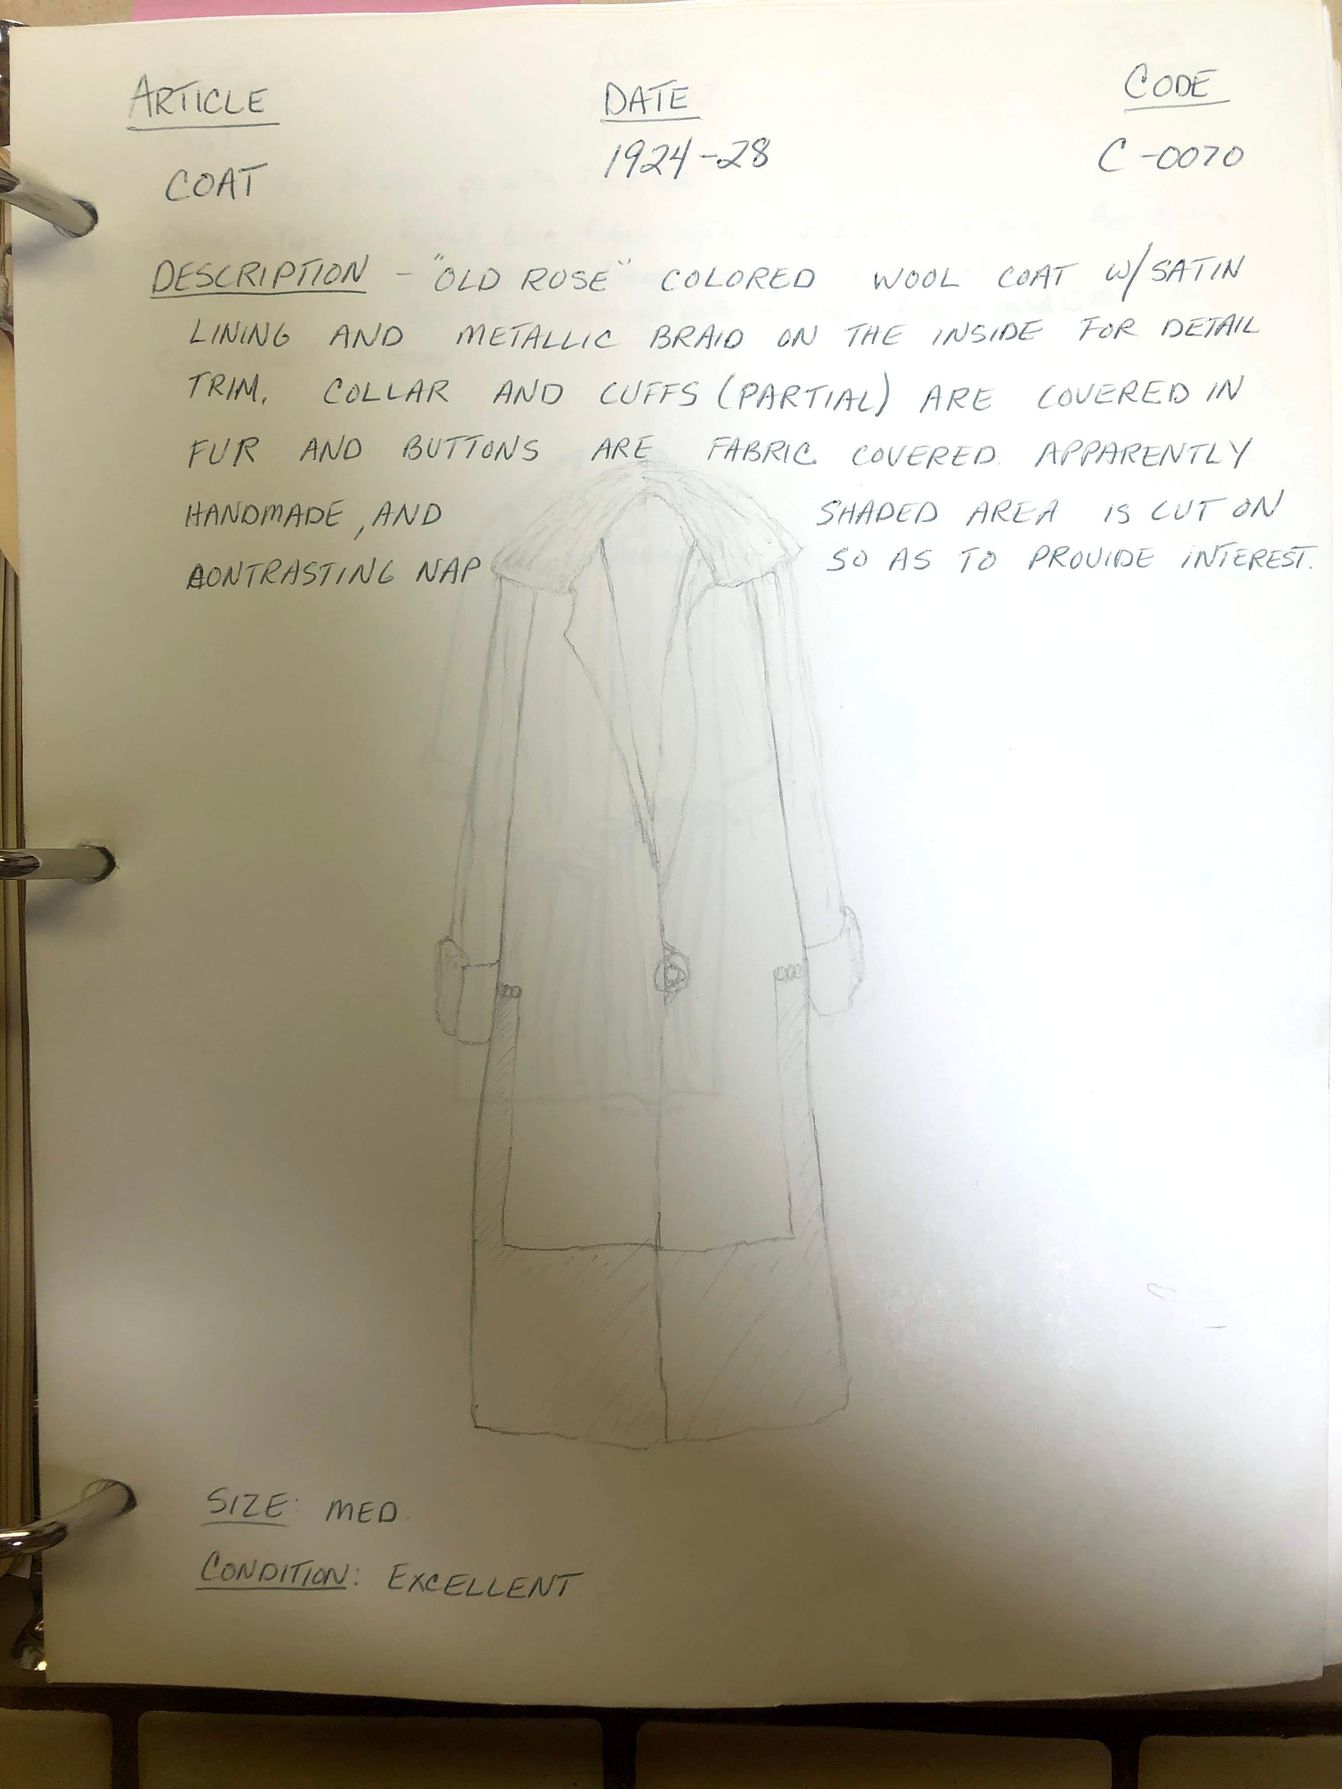 ARTICLE DATE CODE
COAT 1924-28 C-0070
DESCRIPTION - "OLD ROSE" COLORED WOOL COAT W/SATIN
LINING AND METALLIC BRAID ON THE INSIDE FOR DETAIL
TRIM. COLLAR AND CUFFS (PARTIAL) ARE COVERED IN
FUR AND BUTTONS ARE FABRIC COVERED. APPARENTLY
HANDMADE, AND SHADED AREA IS CUT ON
CONTRASTING NAP SO AS TO PROVIDE INTEREST.
SIZE: MED.
CONDITION: EXCELLENT